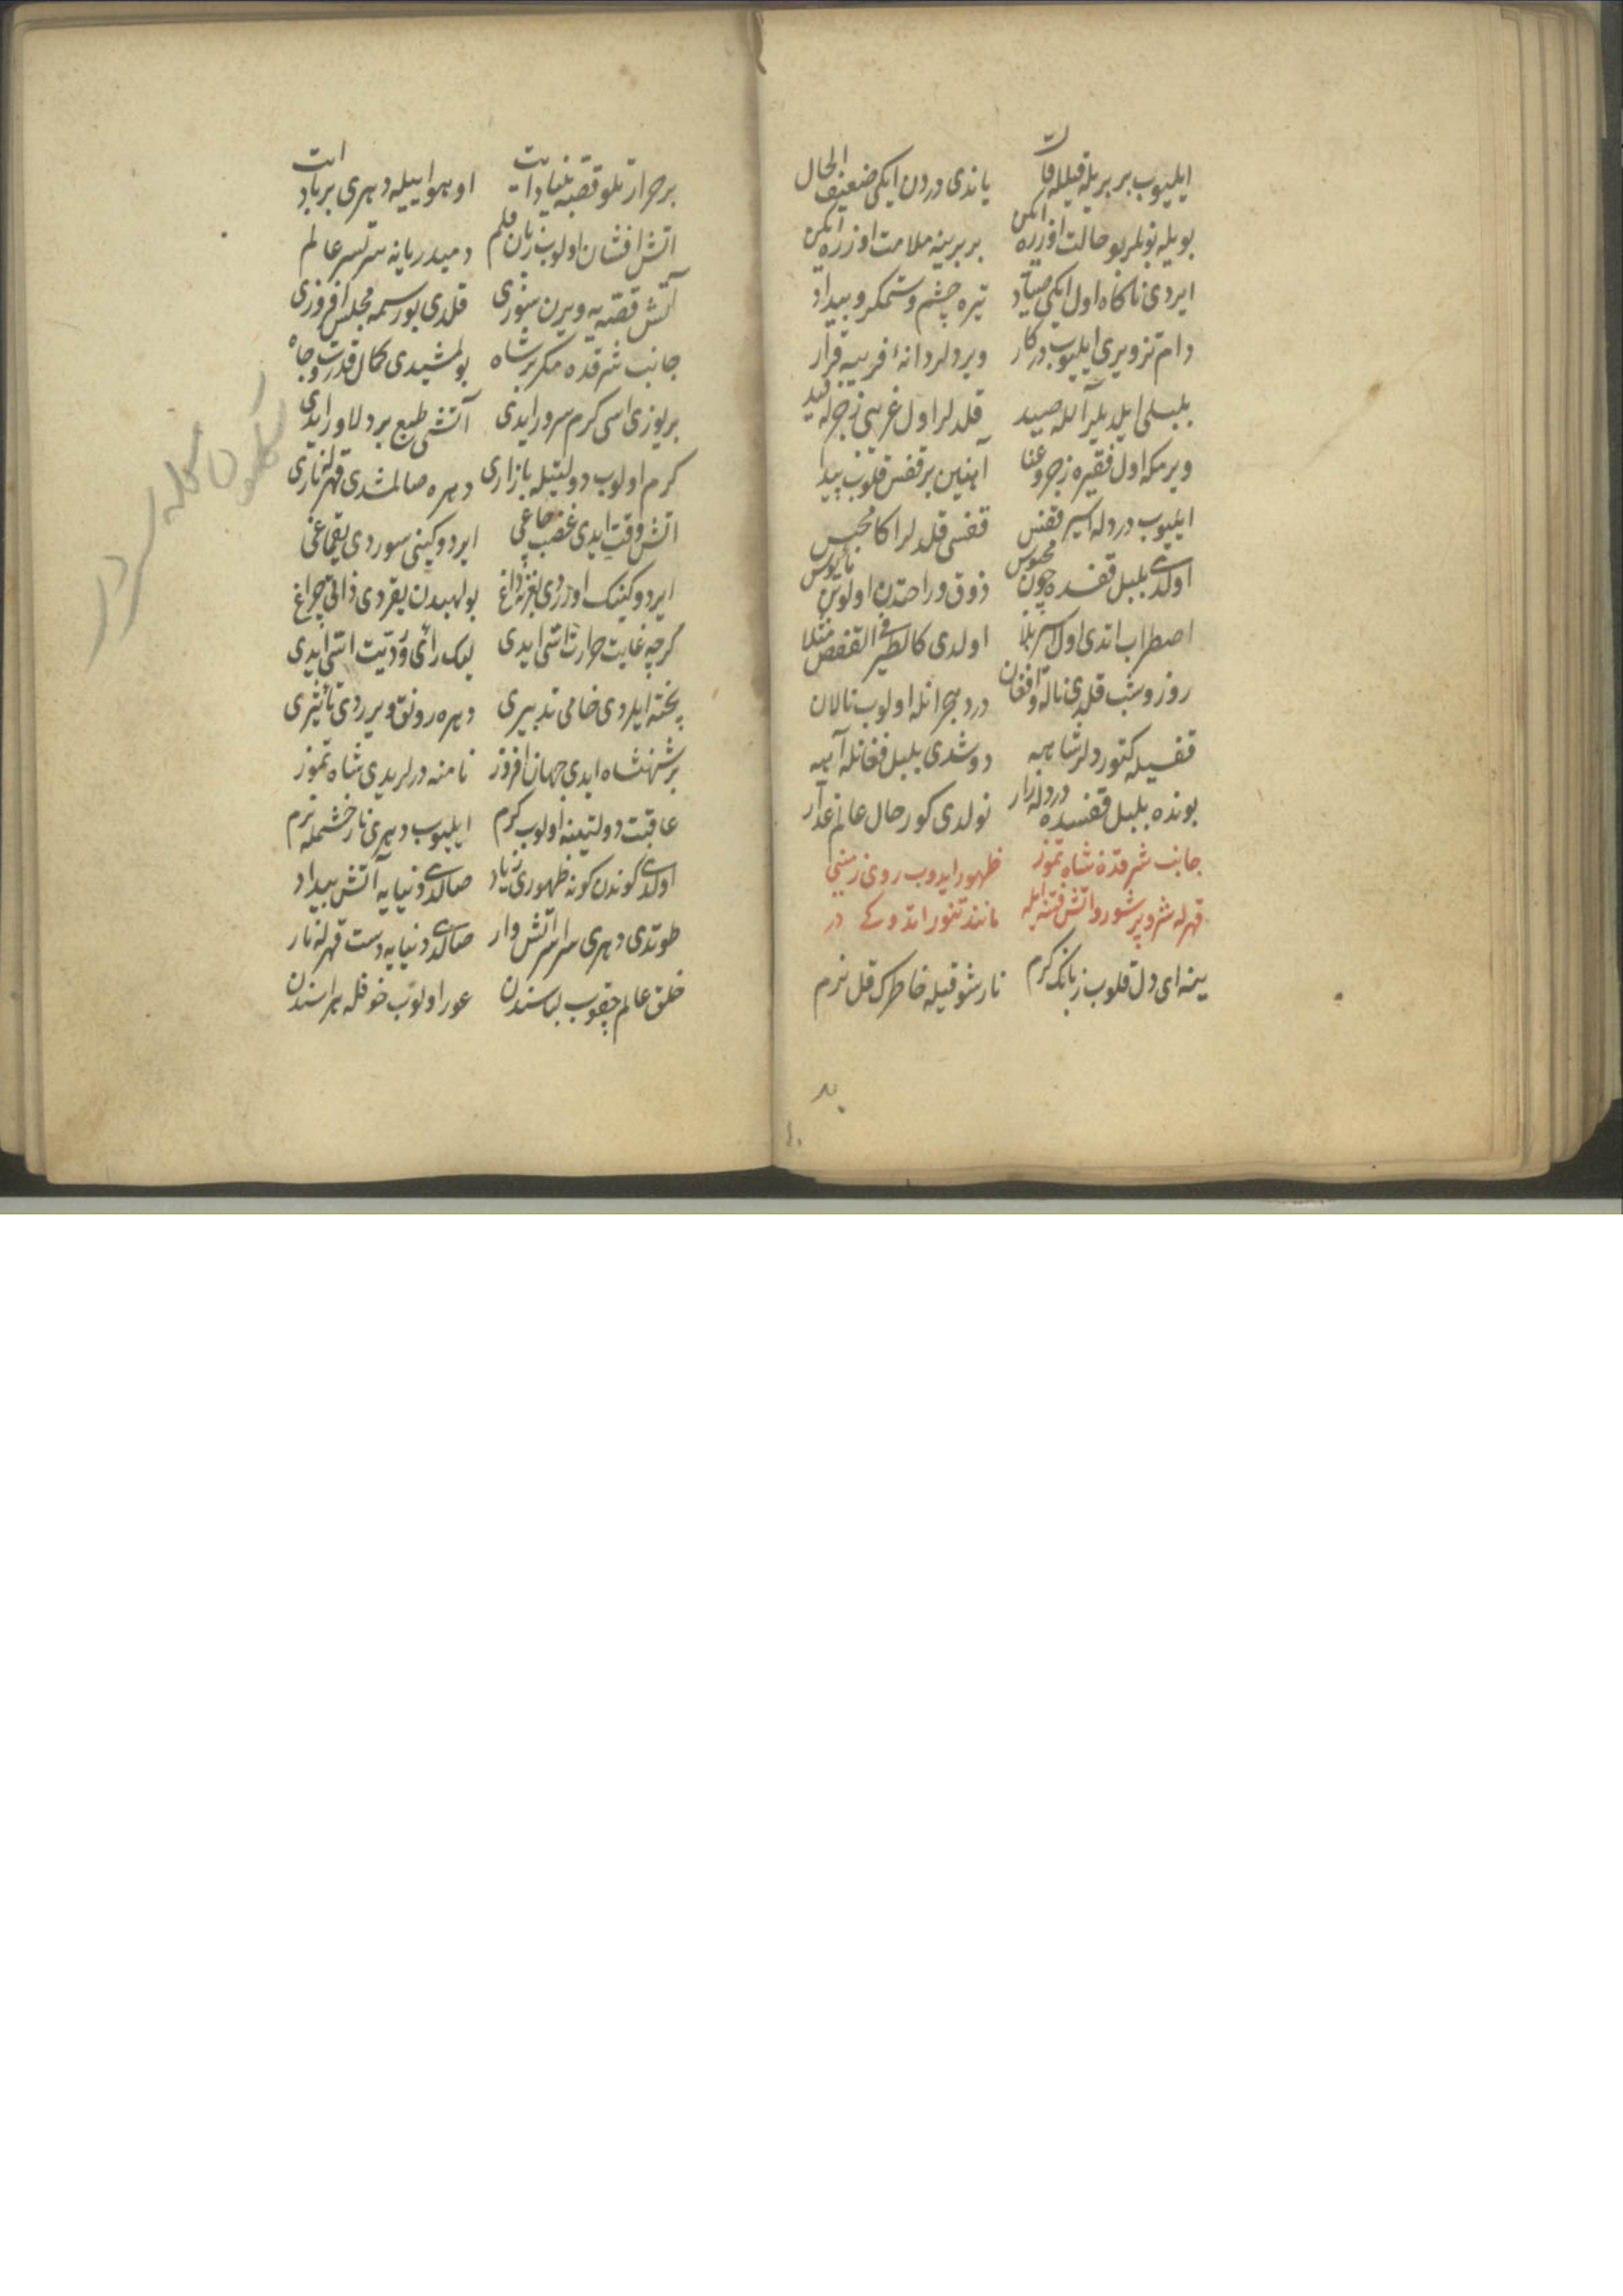 ایلیوب بر بریله قیل و قال یاندی دردن ایکی ضعیف الحال
بویله بونلر بو حالت اوزره ایکن بر برینه ملامت اوزره ایکن
ایردی ناکاه اول ایکی صیاد تیره چشم و ستمکر و بیداد
دام تزویری ایلیوب در کار ویردلر دانهٔ فریبه قرار
بلبلی ایلدیلر آلله صید قلدلر اول غریبی زجرله قید
ویرمکه اول فقیره زجر و عنا آهنین بر قفس قلوب پیدا
ایلیوب دردله اسیر قفس قفسی قلدلر اکا محبس
اولدی بلبل قفسده چون محبوس ذوق و راحتدن اولوبن مأیوس
اضطراب اتدی اول اسیر بلا اولدی کالطیر فی القفص مثلا
روز و شب قلدی ناله و افغان درد هجرانله اولوب نالان
قفسیله کتوردلر شاهه دوشدی بلبل فغانله آهه
بونده بلبل قفسده دردله زار نولدی کور حال عالم غدار
جانب شرقدۀ شاه تموز ظهور ایدوب روی زمینی
قهرله شر و پر شور و آتش فتنه ایله مانند تنور اتدوکی در
ینه ای دل قلوب زبانک کرم نار شوقیله خاطرک قل نرم
بر حرارتلو قصه بنیاد ایت او هوا ییله دهری بر باد ایت
اتش افشان اولوب زبان قلم دمیدر یانه سرتسر عالم
آتش قصه یه ویرن سوزی قلدی بو رسمه مجلس افروزی
جانب شرقده مکر بر شاه بولمشیدی کمال قدرت و جاه
بر یوزی اسی کرم سرور ایدی آتشی طبع بر دلاور ایدی
کرم اولوب دولتیله بازاری دهره صالمشدی قهرله ناری
اتش وقت ایدی غضب چاغی ایردوکینی سوردی یقماغی
ایردوکینک اورردی بغرنه داغ بو لهبدن یقردی ذاتی چراغ
کرچه غایت حرارت اتشی ایدی لیک رأی و رویت اتشی ایدی
پخته ایلردی خامی تدبیری دهره رونق ویرردی تأثیری
بر شهنشاه ایدی جهان افروز نامنه درلریدی شاه تموز
عاقبت دولتینه اولوب کرم ایلیوب دهری نار خشمله نرم
اولدی کوندن کونه ظهوری زیاد صالدی دنیایه آتش بیداد
طوتدی دهری سراسر آتش وار صالدی دنیایه دست قهرله نار
خلق عالم چقوب لباسندن عور اولوب خوفله هراسندن